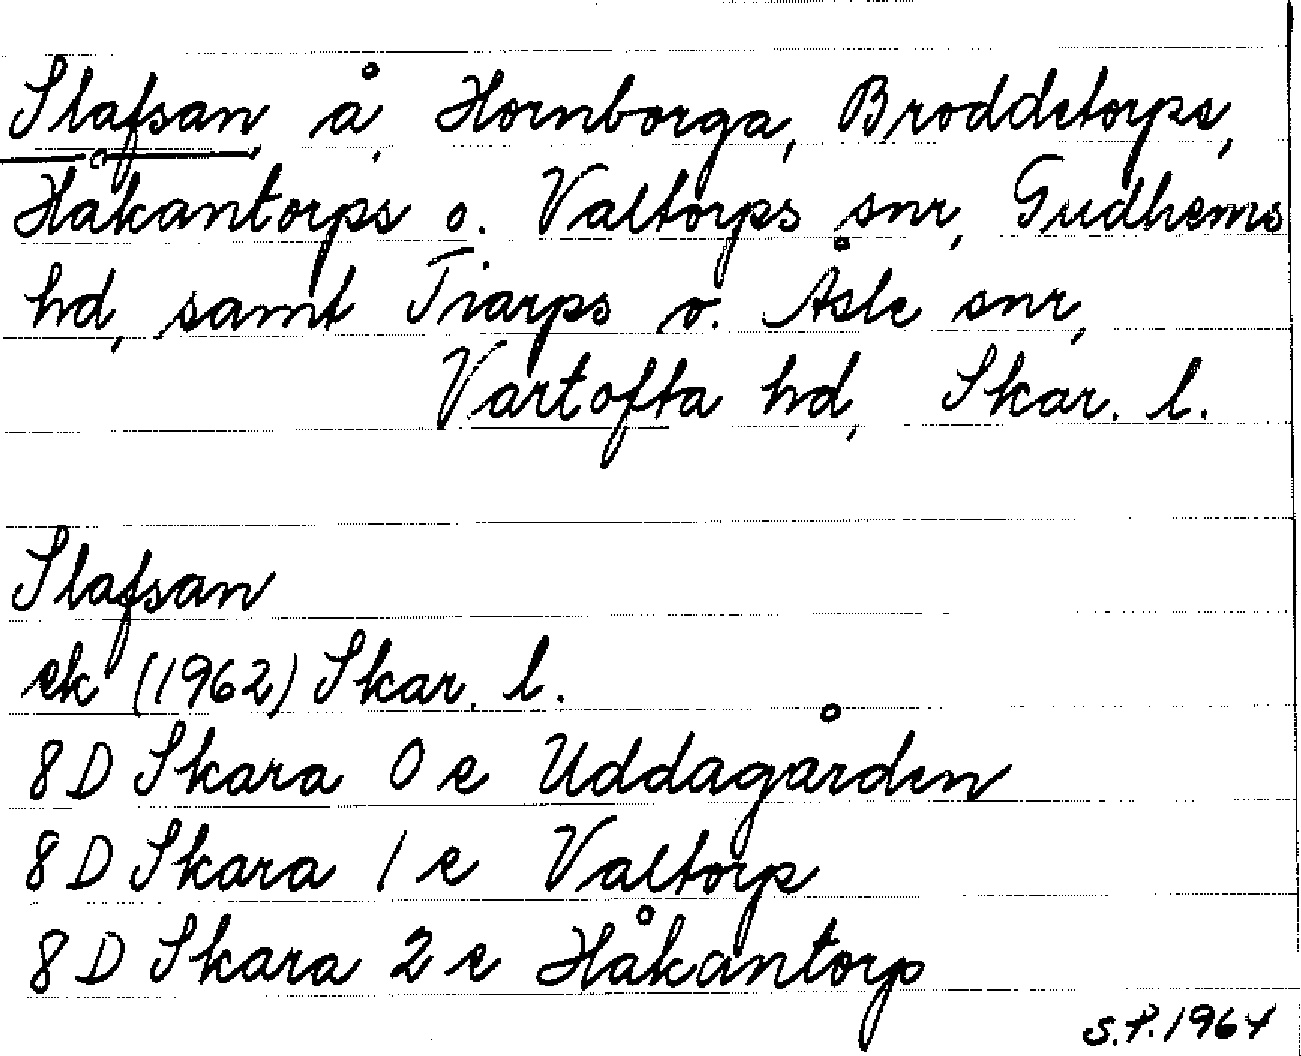 Slafsan å, Hornborga, Broddetorps,
Håkantorps o. Valtorps snr, Gudhems
hd, samt Tiarps o. Åsle snr,
Vartofta hd, Skar. l.
Slafsan
ek (1962) Skar. l.
8 D Skara 0 e Uddagården
8 D Skara 1 e Valtorp
8 D Skara 2 e Håkantorp
S.P. 1964